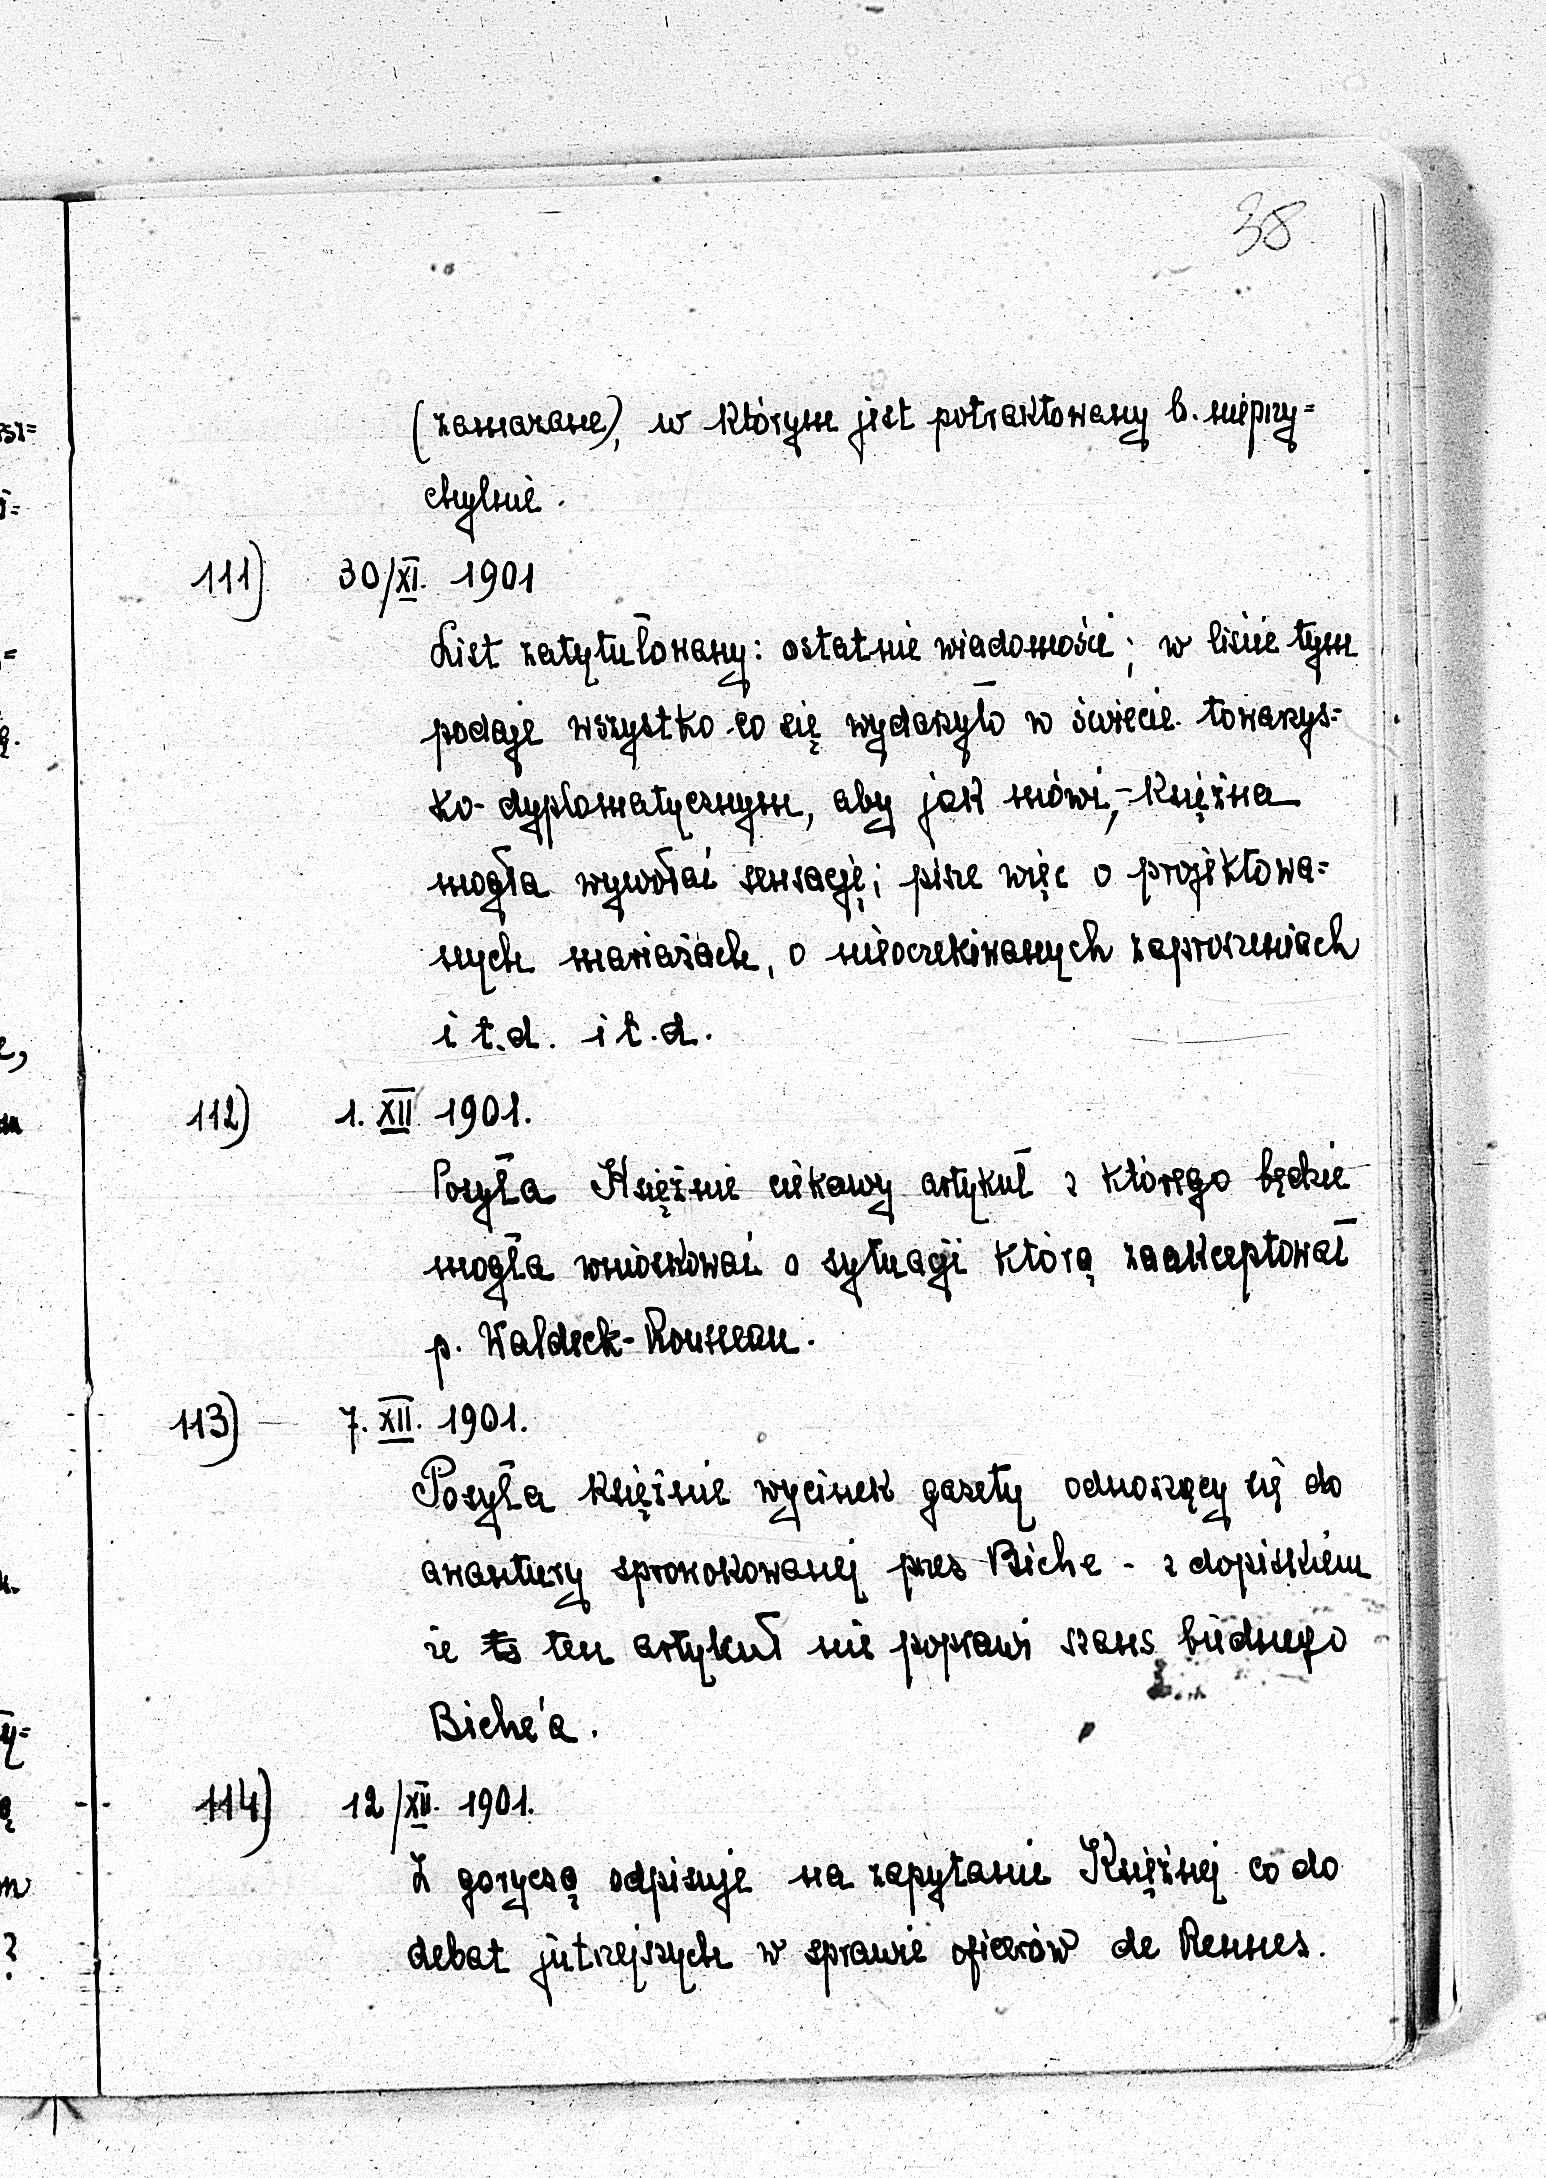 38
(zamazane), w którym jest potraktowany b. nieprzy=
chylnie.
111) 30/XI. 1901
List zatytułowany: ostatnie wiadomości; w liście tym
podaje wszystko co się wydarzyło w świecie towarzys=
ko-dyplomatycznym, aby jak mówi,- Księżna
mogła wywołać sensację; pisze więc o projektowa=
nych mariażach, o nieoczekiwanych zaproszeniach
i t.d. i t.d.
112) 1. XII 1901.
Posyła Księżnie ciekawy artykuł z którego będzie
mogła wnioskować o sytuacji którą zaakceptował
p. Waldeck-Rousseau.
113) 7. XII. 1901.
Posyła księżnie wycinek gazety odnoszący się do
awantury sprowokowanej przez Biche - z dopiskiem
że to ten artykuł nie poprawi szans biednego
Biche'a.
114) 12/XII. 1901.
Z goryczą odpisuje na zapytanie Księżnej co do
debat jutrzejszych w sprawie oficerów de Rennes.